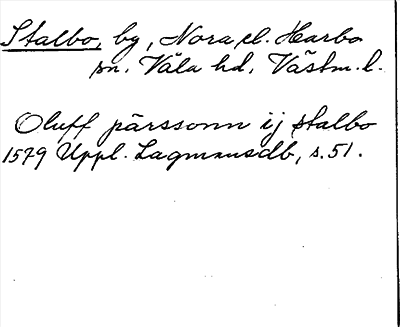 Stalbo, by, Nora el. Harbo
sn. Våla hd. Västm. l.
Oluff pärssonn ij stalbo
1579 Uppl. Lagmansdb, s. 51.